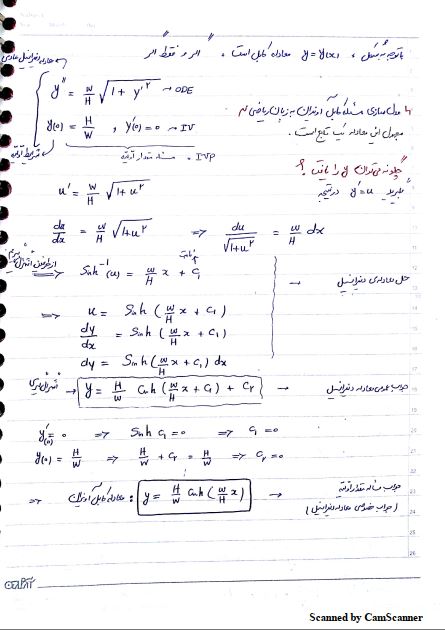 باتوجه به شکل ، y = y(x) معادله کابل است . اگر و فقط اگر
معادله دیفرانسیل عادی
y'' = w/H √(1 + y'^۲) → ODE
y(0) = H/w , y'(0) = 0 → IV
شرایط اولیه
مسئله مقدار اولیه . IVP
مدل سازی مسئله کابل آویزان به زبان ریاضی
مجهول این معادله یک تابع است .
چگونه می توان y را یافت ؟
بگیرید y' = u در نتیجه
u' = w/H √(1+u^۲)
du/dx = w/H √(1+u^۲) => du/√(1+u^۲) = w/H dx
ثابت
از طرفین انتگرال میگیریم => Sinh^-1 (u) = w/H x + C₁
حل معادله ی دیفرانسیل
=> u = Sinh (w/H x + C₁)
=> dy/dx = Sinh (w/H x + C₁)
=> dy = Sinh (w/H x + C₁) dx
→ y = H/w Cosh (w/H x + C₁) + C₂ → جواب عمومی معادله دیفرانسیل
y'(0) = 0 => Sinh C₁ = 0 => C₁ = 0
y(0) = H/w => H/w + C₂ = H/w => C₂ = 0
=> معادله کابل آویزان : y = H/w Cosh (w/H x) → جواب مسئله مقدار اولیه
(جواب خصوصی معادله دیفرانسیل)
Scanned by CamScanner